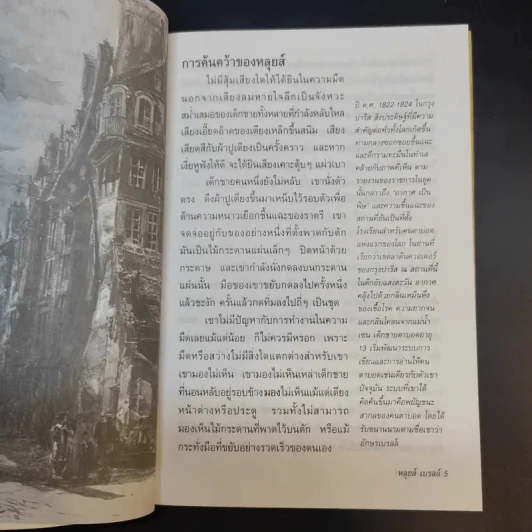 การค้นคว้าของหลุยส์
ไม่มีสุ้มเสียงใดให้ได้ยินในความมืด
นอกจากเสียงลมหายใจลึกเป็นจังหวะ
สม่ำเสมอของเด็กชายทั้งหลายที่กำลังหลับใหล
เสียงเอี๊ยดอ๊าดของเตียงเหล็กขึ้นสนิม เสียง
เสียดสีกับผ้าปูเตียงเป็นครั้งคราว และหาก
เงี่ยหูฟังให้ดี จะได้ยินเสียงเคาะตุ้บๆ แผ่วเบา
เด็กชายคนหนึ่งยังไม่หลับ เขานั่งตัว
ตรง ดึงผ้าปูเตียงขึ้นมาเหน็บไว้รอบตัวเพื่อ
ต้านความหนาวเยือกชื้นแฉะของราตรี เขา
จดจ่ออยู่กับของอย่างหนึ่งที่ตั้งพาดกับตัก
มันเป็นไม้กระดานแผ่นเล็กๆ ปิดหน้าด้วย
กระดาษ และเขากำลังนั่งกดลงบนกระดาน
แผ่นนั้น มือของเขาขยับกดลงไปครั้งหนึ่ง
แล้วชะงัก ครั้นแล้วกดทิ่มลงไปถี่ๆ เป็นชุด
เขาไม่มีปัญหากับการทำงานในความ
มืดเลยแม้แต่น้อย ก็ไม่ควรมีหรอก เพราะ
มืดหรือสว่างไม่มีสิ่งใดแตกต่างสำหรับเขา
เขามองไม่เห็น เขามองไม่เห็นเหล่าเด็กชาย
ที่นอนหลับอยู่รอบข้าง มองไม่เห็นแม้แต่เตียง
หน้าต่างหรือประตู รวมทั้งไม่สามารถ
มองเห็นไม้กระดานที่พาดไว้บนตัก หรือแม้
กระทั่งมือที่ขยับอย่างรวดเร็วของตนเอง
ปี ค.ศ. 1822-1824 ในกรุง
ปารีส สิ่งประดิษฐ์ที่มีความ
สำคัญต่อทั่วทั้งโลกเกิดขึ้น
ท่ามกลางซอกซอยชื้นแฉะ
และตึกรามทะมึนในทำเล
คล้ายกับภาพที่เห็น ตาม
รายงานของราชการในยุค
นั้นกล่าวถึง "อากาศ เป็น
พิษ" และความชื้นแฉะของ
สถานที่อันเป็นที่ตั้ง
โรงเรียนสำหรับคนตาบอด
แห่งแรกของโลก ในย่านที่
เรียกว่าเขตลาตินควอเตอร์
ของกรุงปารีส ณ สถานที่นี้
ในตึกอับแสงตะวัน อากาศ
คลุ้งไปด้วยกลิ่นเหม็นหึ่ง
ของเชื้อโรค ความยากจน
และกลิ่นโคลนจากแม่น้ำ
เซน เด็กชายตาบอดอายุ
13 เริ่มพัฒนาระบบการ
เขียนและการอ่านให้คน
ตาบอดเช่นเดียวกับตัวเขา
ปัจจุบัน ระบบที่เขาได้
คิดค้นขึ้นมาคือพยัญชนะ
สากลของคนตาบอด โดยได้
รับขนานนามตามชื่อเขาว่า
อักษรเบรลล์
หลุยส์ เบรลล์ 5